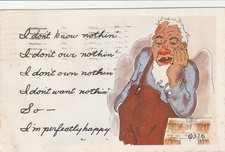 I don't know nothin'
I don't owe nothin'
I don't own nothin'
I don't want nothin'
So —
I'm perfectly happy